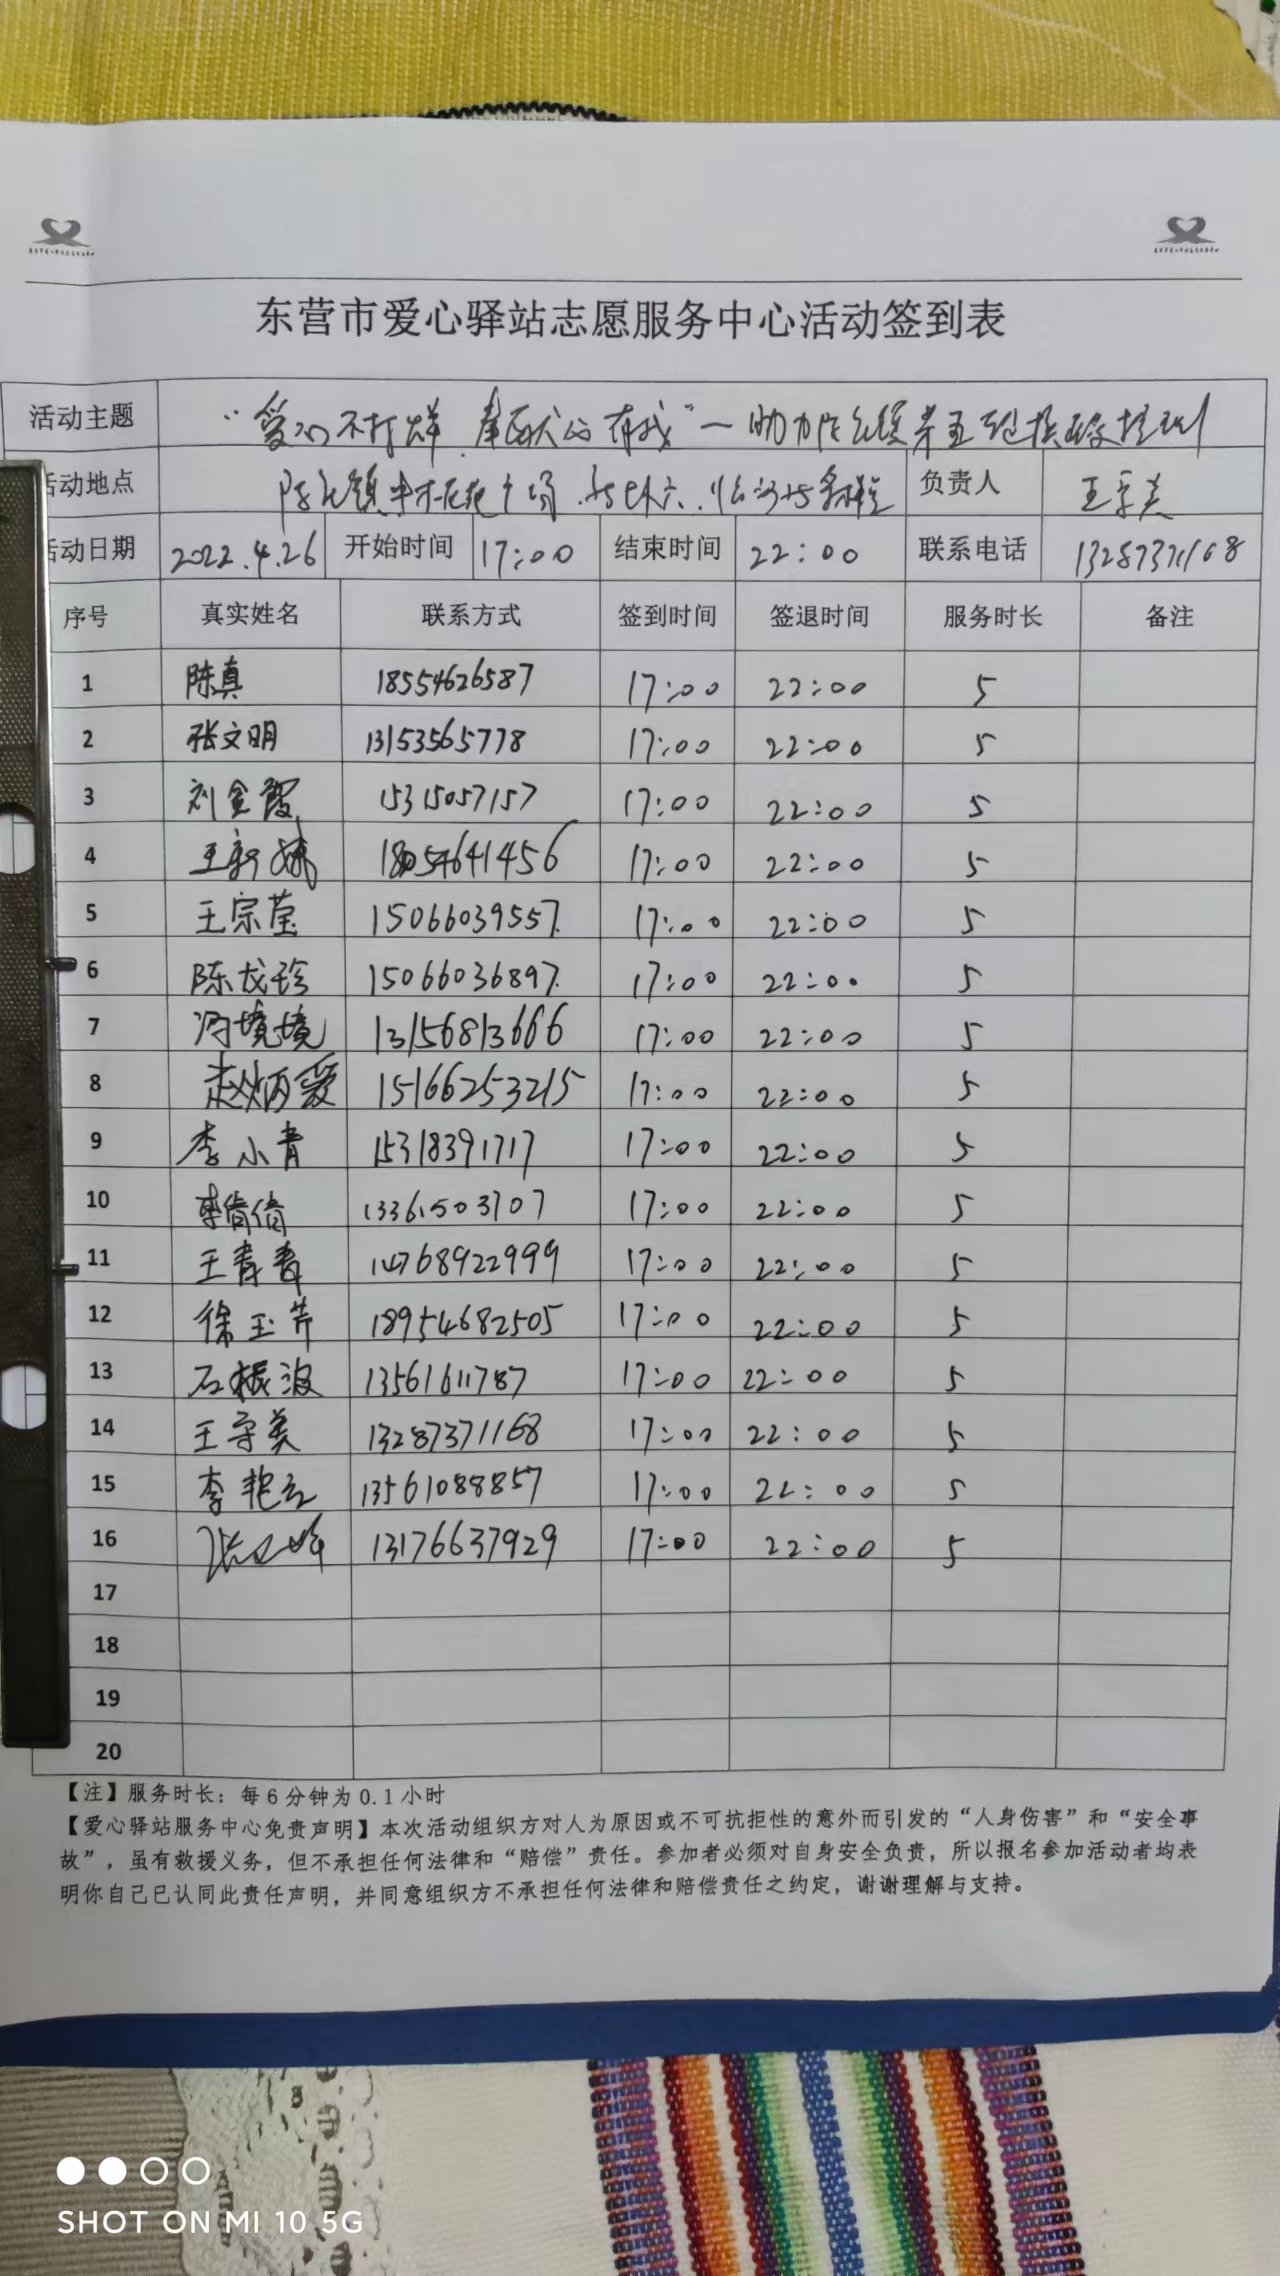 东营市爱心驿站志愿服务中心活动签到表
活动主题 “爱心不打烊,奉献心有我”一助力陈官镇第五轮核酸检测
活动地点 陈官镇 广场 负责人 王守美
活动日期 2022.4.26 开始时间 17:00 结束时间 22:00 联系电话 13287371168
序号 真实姓名 联系方式 签到时间 签退时间 服务时长 备注
1 陈真 18554626587 17:00 22:00 5
2 张文明 13153565778 17:00 22:00 5
3 刘金霞 15315057157 17:00 22:00 5
4 王新 18054641456 17:00 22:00 5
5 王宗莹 15066039557 17:00 22:00 5
6 陈戈珍 15066036897 17:00 22:00 5
7 冯境境 13156813666 17:00 22:00 5
8 赵炳爱 15166253215 17:00 22:00 5
9 李小青 15318391717 17:00 22:00 5
10 李倩倩 13361503707 17:00 22:00 5
11 王青青 14768922999 17:00 22:00 5
12 徐玉芹 18954682505 17:00 22:00 5
13 石振波 13561611787 17:00 22:00 5
14 王守美 13287371168 17:00 22:00 5
15 李艳云 13561088857 17:00 22:00 5
16 张 峰 13176637929 17:00 22:00 5
17
18
19
20
【注】服务时长：每6分钟为0.1小时
【爱心驿站服务中心免责声明】本次活动组织方对人为原因或不可抗拒性的意外而引发的“人身伤害”和“安全事
故”，虽有救援义务，但不承担任何法律和“赔偿”责任。参加者必须对自身安全负责，所以报名参加活动者均表
明你自己已认同此责任声明，并同意组织方不承担任何法律和赔偿责任之约定，谢谢理解与支持。
SHOT ON MI 10 5G